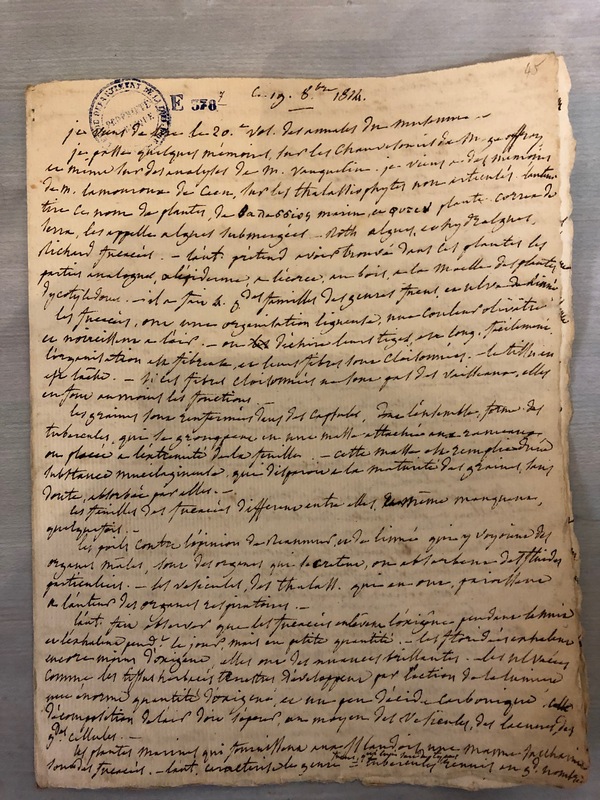 45
E 378 7
Ce 19. 8.bre 1814.
je viens de lire le 20.e vol. des annales du museum. —
je passe quelques mémoires, sur les
ce même sur des analyses de M. Vauquelin. je viens a des mémoires
de M. lamouroux de Caen, sur les thalassiophytes non articulés. lauteur
tire ce nom de plantes, de marin, et plante. Correa de
Serra, les appelle algues submergées. — Roth algues, et hydralgues,
Richard fucacés. — laut. pretend avoir trouvé dans les plantes les
parties analogues, a lépiderme, a lécorce, au bois, a la moelle des plantes
dycotyledones. — il a fait 4 gdes familles des genres fucus, et ulva de
les fucacés, ont une organisation ligneuse, une couleur olivâtre
et noircissent a lair. — on déchire leurs tiges, en long, facilement,
lorganisation est fibreuse, et leurs fibres sont cloisonnées. — le tissu en
est lâche. — si les fibres cloisonnées ne sont pas des vaisseaux, elles
en font au moins les fonctions. —
les graines sont renfermées dans des capsules, dont lensemble, forme des
tubercules, qui se groupent en une masse attachée aux rameaux
ou placée a lextrémité de la feuille. — cette masse est remplie d'une
substance mucilagineuse, qui disparoit a la maturité des graines, sans
doute, absorbée par elles. —
les feuilles des fucacés different entre elles, manquent,
quelquefois. —
les poils contre l'opinion de Reaumur, et de linné qui y voyoient des
organes males, sont des organes qui secretent, ou absorbent des fluides
particuliers. — les vesicules, des thalass. qui en ont, paroissent
a lauteur des organes respiratoires. —
laut. fait observer que les fucacés enlevent loxigène pendant la nuit
et lexhalent pendt le jour, mais en petite quantité. — les floridées exhalent
encore moins d'oxigene, elles ont des nuances brillantes. — les ulvacées
comme les tissus herbacés terrestres développent par l'action de la lumiere
une énorme quantité d'oxigene, et un peu d'acide carbonique. cette
décomposition de lair doit sopérer, au moyen des vesicules, des lacunes, des
gdes cellules. —
les plantes marines qui fournissent une
sont des fucacés. — laut. caracterise le genre tubercules réunis en gd. nombre